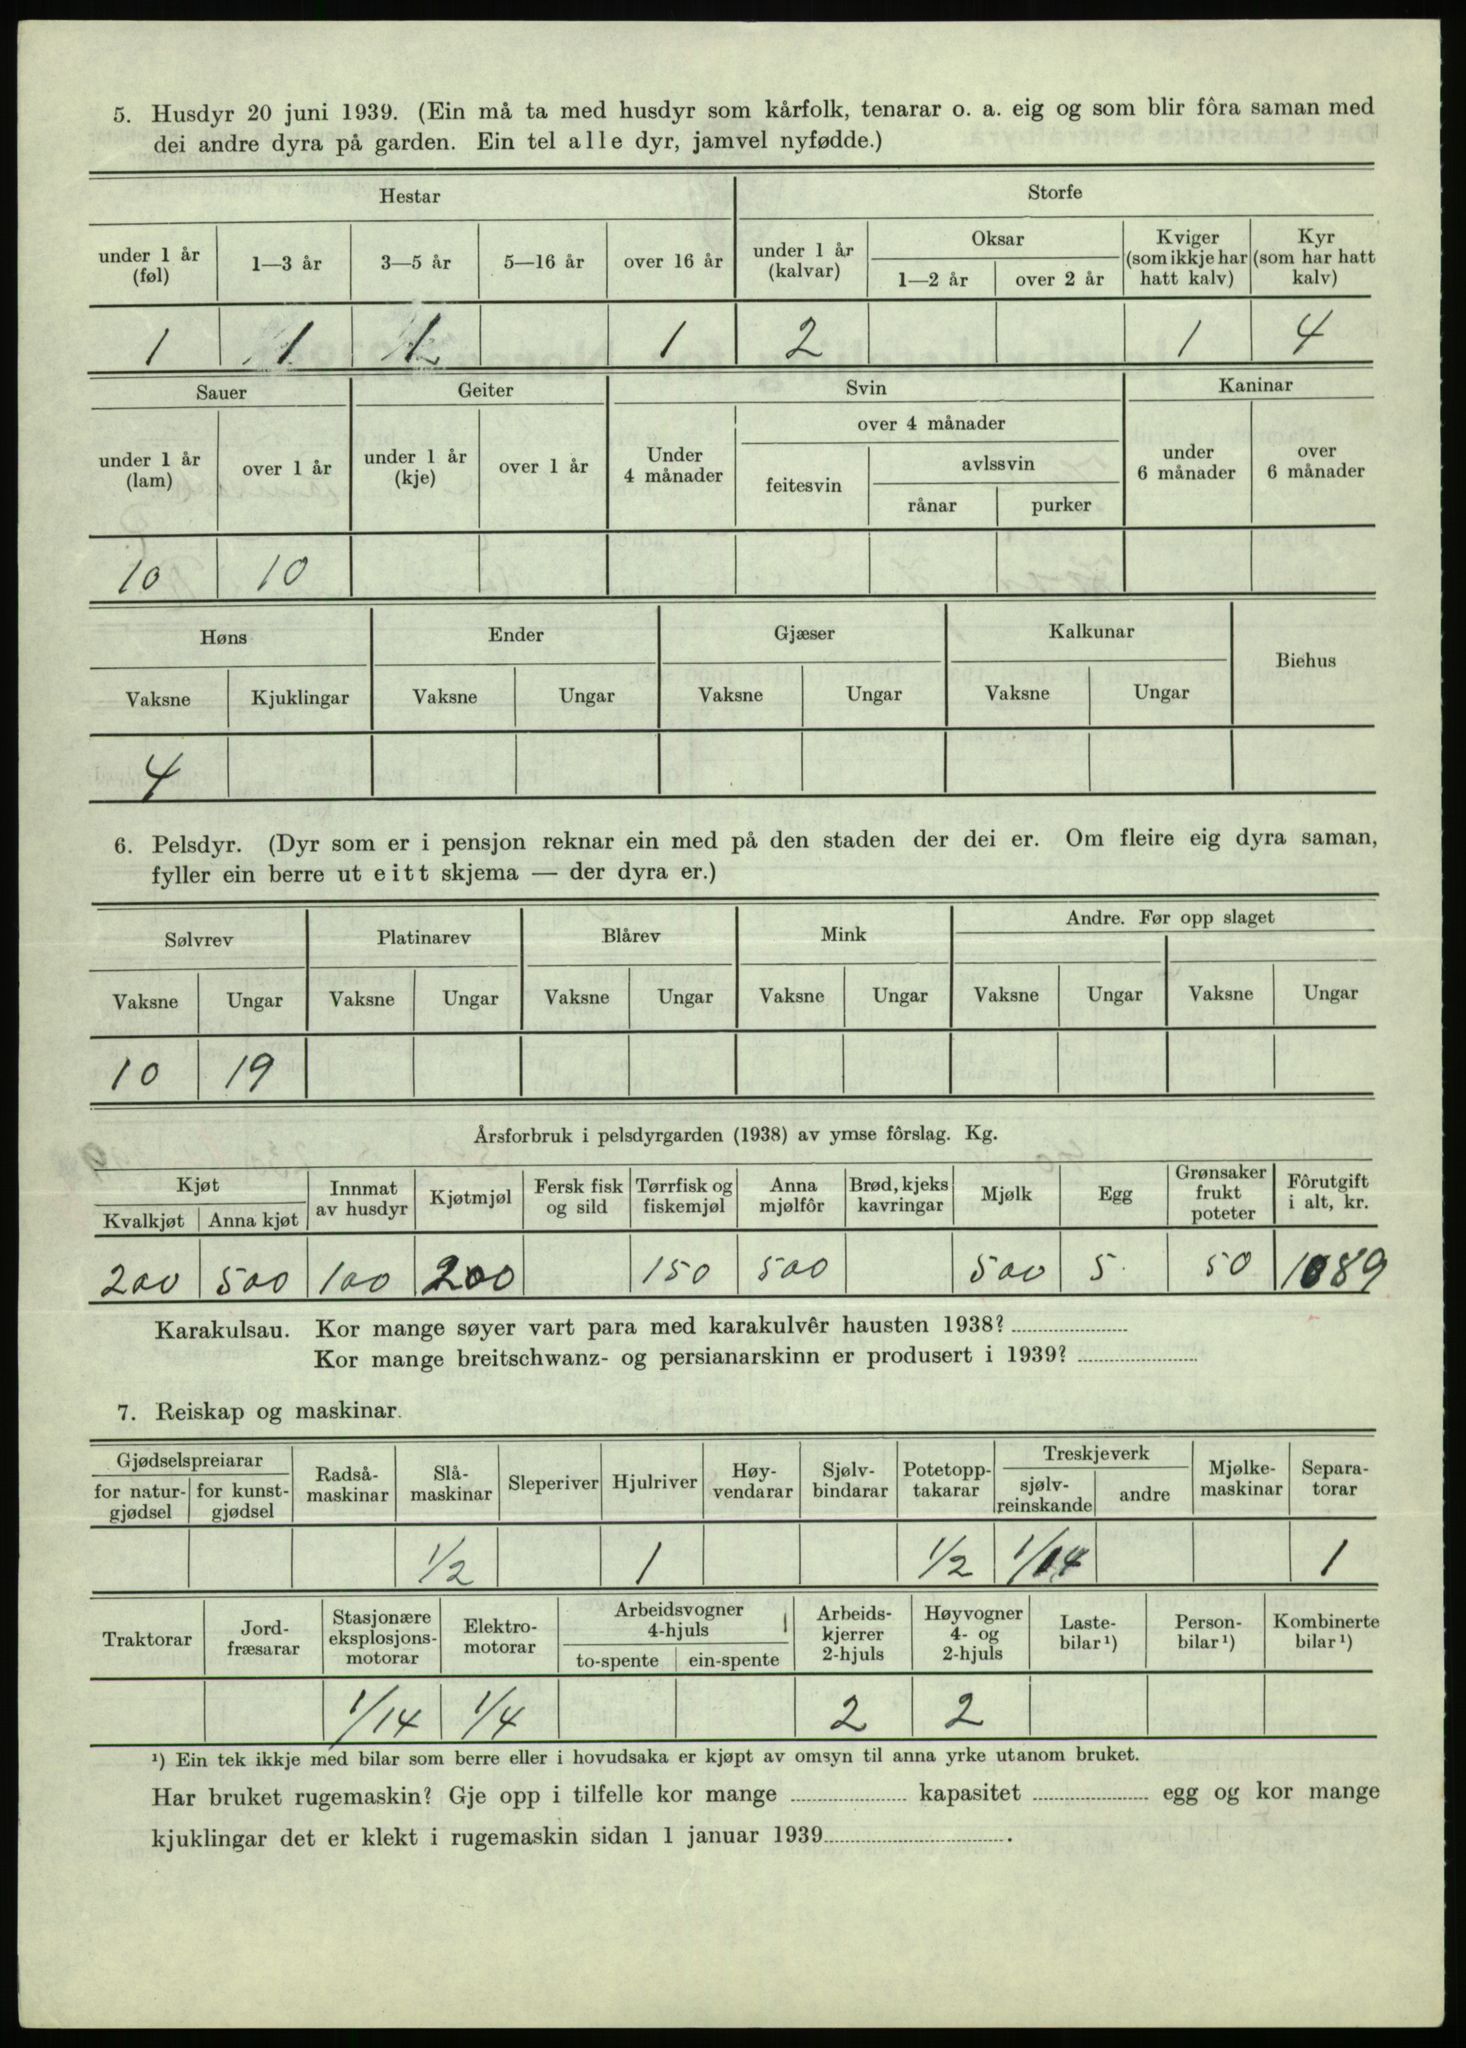 5. Husdyr 20 juni 1939. (Ein må ta med husdyr som kårfolk, tenarar o. a. eig og som blir fôra saman med
dei andre dyra på garden. Ein tel alle dyr, jamvel nyfødde.)
Hestar Storfe
under 1 år (føl) 1—3 år 3—5 år 5—16 år over 16 år under 1 år (kalvar) Oksar 1—2 år over 2 år Kviger (som ikkje har hatt kalv) Kyr (som har hatt kalv)
1 1 1 1 2 1 4
Sauer Geiter Svin Kaninar
under 1 år (lam) over 1 år under 1 år (kje) over 1 år Under 4 månader over 4 månader feitesvin avlssvin rånar purker under 6 månader over 6 månader
10 10
Høns Ender Gjæser Kalkunar Biehus
Vaksne Kjuklingar Vaksne Ungar Vaksne Ungar Vaksne Ungar
4
6. Pelsdyr. (Dyr som er i pensjon reknar ein med på den staden der dei er. Om fleire eig dyra saman,
fyller ein berre ut eitt skjema — der dyra er.)
Sølvrev Platinarev Blårev Mink Andre. Før opp slaget
Vaksne Ungar Vaksne Ungar Vaksne Ungar Vaksne Ungar Vaksne Ungar Vaksne Ungar
10 19
Årsforbruk i pelsdyrgarden (1938) av ymse fôrslag. Kg.
Kjøt Kvalkjøt Anna kjøt Innmat av husdyr Kjøtmjøl Fersk fisk og sild Tørrfisk og fiskemjøl Anna mjølfôr Brød, kjeks kavringar Mjølk Egg Grønsaker frukt poteter Fôrutgift i alt, kr.
200 500 100 200 150 500 500 5 50 1089
Karakulsau. Kor mange søyer vart para med karakulvêr hausten 1938?
Kor mange breitschwanz- og persianarskinn er produsert i 1939?
7. Reiskap og maskinar.
Gjødselspreiarar for natur-gjødsel for kunst-gjødsel Radså-maskinar Slå-maskinar Sleperiver Hjulriver Høy-vendarar Sjølv-bindarar Potetopp-takarar Treskjeverk sjølv-reinskande andre Mjølke-maskinar Separa-torar
1/2 1 1/2 1/14 1
Traktorar Jord-fræsarar Stasjonære eksplosjons-motorar Elektro-motorar Arbeidsvogner 4-hjuls to-spente ein-spente Arbeids-kjerrer 2-hjuls Høyvogner 4- og 2-hjuls Laste-bilar¹) Person-bilar¹) Kombinerte bilar¹)
1/14 1/4 2 2
¹) Ein tek ikkje med bilar som berre eller i hovudsaka er kjøpt av omsyn til anna yrke utanom bruket.
Har bruket rugemaskin? Gje opp i tilfelle kor mange kapasitet egg og kor mange
kjuklingar det er klekt i rugemaskin sidan 1 januar 1939 .